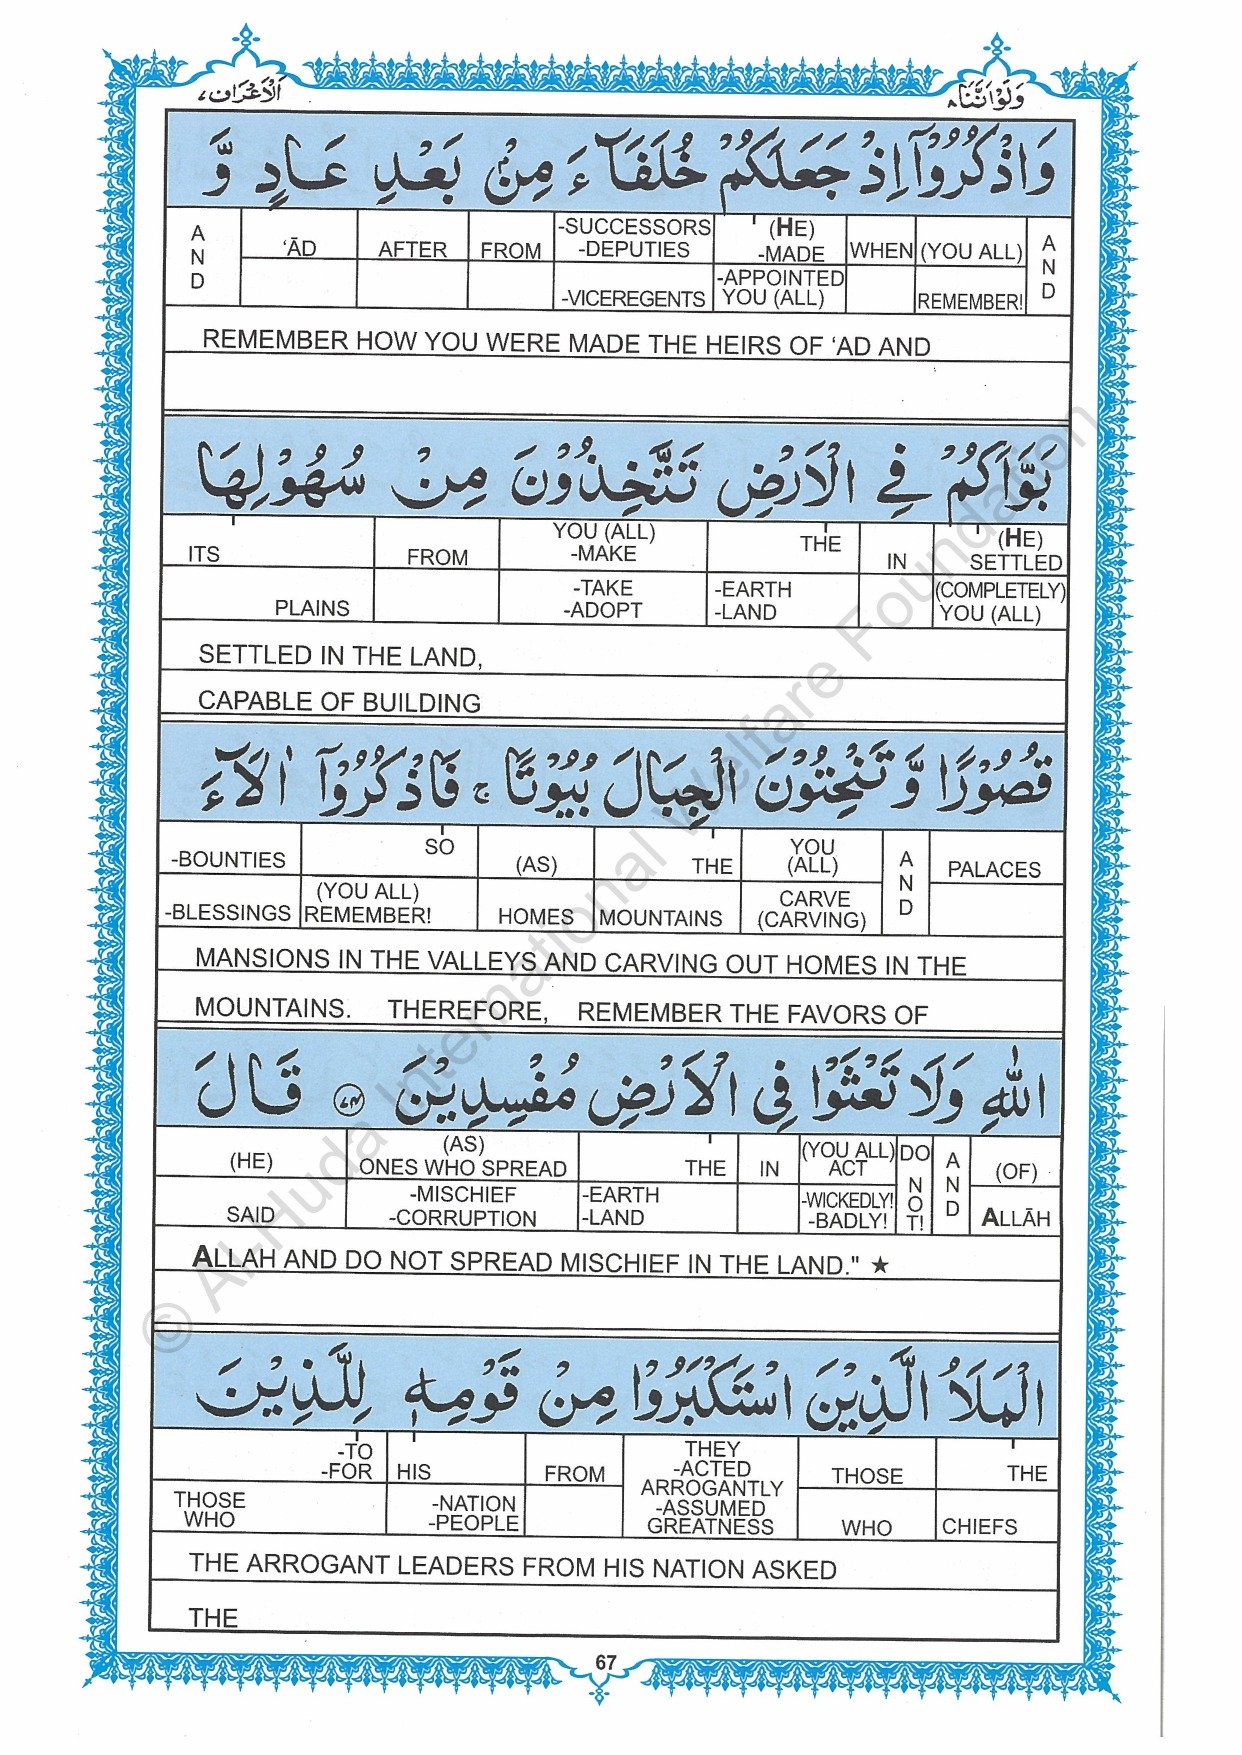 الاعراف ٧
ولواننا ٨
وَاذْكُرُوْٓا اِذْ جَعَلَكُمْ خُلَفَآءَ مِنْۢ بَعْدِ عَادٍ وَّ
A N D | ‘ĀD | AFTER | FROM | -SUCCESSORS -DEPUTIES -VICEREGENTS | (HE) -MADE -APPOINTED YOU (ALL) | WHEN | (YOU ALL) REMEMBER! | A N D
REMEMBER HOW YOU WERE MADE THE HEIRS OF ‘AD AND
بَوَّاَكُمْ فِي الْاَرْضِ تَتَّخِذُوْنَ مِنْ سُهُوْلِهَا
ITS PLAINS | FROM | YOU (ALL) -MAKE -TAKE -ADOPT | THE -EARTH -LAND | IN | (HE) SETTLED (COMPLETELY) YOU (ALL)
SETTLED IN THE LAND,
CAPABLE OF BUILDING
قُصُوْرًا وَّ تَنْحِتُوْنَ الْجِبَالَ بُيُوْتًا ۚ فَاذْكُرُوْٓا اٰلَآءَ
-BOUNTIES -BLESSINGS | SO (YOU ALL) REMEMBER! | (AS) HOMES | THE MOUNTAINS | YOU (ALL) CARVE (CARVING) | A N D | PALACES
MANSIONS IN THE VALLEYS AND CARVING OUT HOMES IN THE
MOUNTAINS. THEREFORE, REMEMBER THE FAVORS OF
اللّٰهِ وَلَا تَعْثَوْا فِي الْاَرْضِ مُفْسِدِيْنَ ﴿٧٤﴾ قَالَ
(HE) SAID | (AS) ONES WHO SPREAD -MISCHIEF -CORRUPTION | THE -EARTH -LAND | IN | (YOU ALL) ACT -WICKEDLY! -BADLY! | DO N O T! | A N D | (OF) ALLĀH
ALLAH AND DO NOT SPREAD MISCHIEF IN THE LAND." ★
الْمَلَاُ الَّذِيْنَ اسْتَكْبَرُوْا مِنْ قَوْمِهٖ لِلَّذِيْنَ
-TO -FOR THOSE WHO | HIS -NATION -PEOPLE | FROM | THEY -ACTED ARROGANTLY -ASSUMED GREATNESS | THOSE WHO | THE CHIEFS
THE ARROGANT LEADERS FROM HIS NATION ASKED
THE
67
© Al-Huda International Welfare Foundation